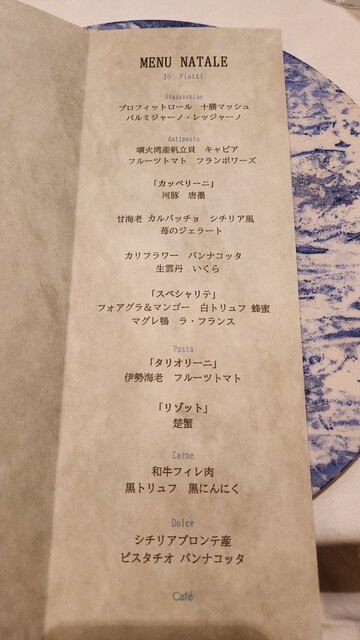 MENU NATALE
10 Piatti
Stuzzichino
プロフィットロール 十勝マッシュ
パルミジャーノ・レッジャーノ
Antipasto
噴火湾産帆立貝 キャビア
フルーツトマト フランボワーズ
「カッペリーニ」
河豚 唐墨
甘海老 カルパッチョ シチリア風
苺のジェラート
カリフラワー パンナコッタ
生雲丹 いくら
「スペシャリテ」
フォアグラ&マンゴー 白トリュフ 蜂蜜
マグレ鴨 ラ・フランス
Pasta
「タリオリーニ」
伊勢海老 フルーツトマト
「リゾット」
楚蟹
Carne
和牛フィレ肉
黒トリュフ 黒にんにく
Dolce
シチリアブロンテ産
ピスタチオ パンナコッタ
Café